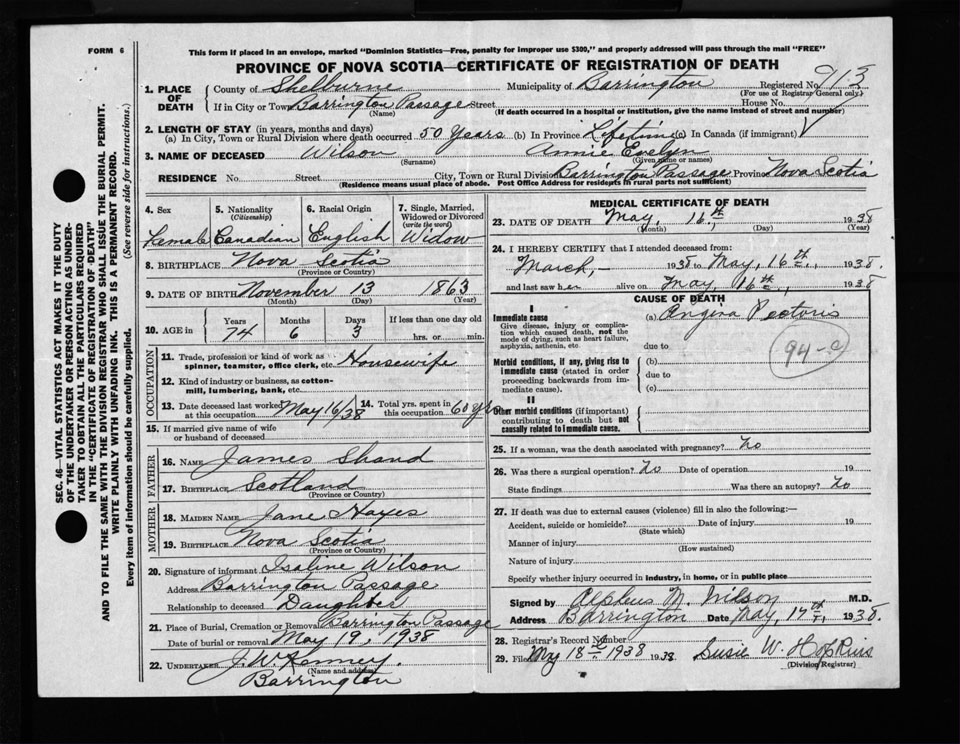 FORM 6
This form if placed in an envelope, marked "Dominion Statistics—Free, penalty for improper use $300," and properly addressed will pass through the mail "FREE"
PROVINCE OF NOVA SCOTIA—CERTIFICATE OF REGISTRATION OF DEATH
1. PLACE OF DEATH
County of Shelburne Municipality of Barrington Registered No. 913
(For use of Registrar General only)
If in City or Town Barrington Passage Street House No.
(Name) (If death occurred in a hospital or institution, give the name instead of street and number)
2. LENGTH OF STAY (in years, months and days)
(a) In City, Town or Rural Division where death occurred 50 Years (b) In Province Lifetime (c) In Canada (if immigrant)
3. NAME OF DECEASED Wilson Annie Evelyn
(Surname) (Given name or names)
RESIDENCE No. Street City, Town or Rural Division Barrington Passage Province Nova Scotia
(Residence means usual place of abode. Post Office Address for residents in rural parts not sufficient)
4. Sex
Female
5. Nationality
(Citizenship)
Canadian
6. Racial Origin
English
7. Single, Married, Widowed or Divorced
(write the word)
Widow
8. BIRTHPLACE Nova Scotia
(Province or Country)
9. DATE OF BIRTH November 13 1863
(Month) (Day) (Year)
10. AGE in
Years Months Days If less than one day old
74 6 3 hrs. or min.
OCCUPATION
11. Trade, profession or kind of work as
spinner, teamster, office clerk, etc. Housewife
12. Kind of industry or business, as cotton-
mill, lumbering, bank, etc.
13. Date deceased last worked
at this occupation May 16/38
14. Total yrs. spent in
this occupation 60 yrs
15. If married give name of wife
or husband of deceased
FATHER
16. NAME James Shand
17. BIRTHPLACE Scotland
(Province or Country)
MOTHER
18. MAIDEN NAME Jane Hayes
19. BIRTHPLACE Nova Scotia
(Province or Country)
20. Signature of informant Isaline Wilson
Address Barrington Passage
Relationship to deceased Daughter
21. Place of Burial, Cremation or Removal Barrington Passage
Date of burial or removal May 19, 1938
22. UNDERTAKER J. W. Kenney.
(Name and address)
Barrington
MEDICAL CERTIFICATE OF DEATH
23. DATE OF DEATH May, 16th 1938
(Month) (Day) (Year)
24. I HEREBY CERTIFY that I attended deceased from:
March, — 1938 to May, 16th, 1938.
and last saw her alive on May, 16th, 1938
CAUSE OF DEATH
I
Immediate cause
Give disease, injury or complica-
tion which caused death, not the
mode of dying, such as heart failure,
asphyxia, asthenia, etc.
(a) Angina Pectoris
due to
94-c
Morbid conditions, if any, giving rise to
immediate cause (stated in order
proceeding backwards from im-
mediate cause).
(b)
due to
(c)
II
Other morbid conditions (if important)
contributing to death but not
causally related to immediate cause.
25. If a woman, was the death associated with pregnancy? No
26. Was there a surgical operation? No Date of operation 19
State findings Was there an autopsy? No
27. If death was due to external causes (violence) fill in also the following:—
Accident, suicide or homicide? Date of injury 19
(State which)
Manner of injury
(How sustained)
Nature of injury
Specify whether injury occurred in industry, in home, or in public place
Signed by Alpheus M. Wilson M.D.
Address Barrington Date May, 17th, 1938.
28. Registrar's Record Number
29. Filed May 18th 1938 1938 Susie W. Hopkins
(Division Registrar)
SEC. 46—VITAL STATISTICS ACT MAKES IT THE DUTY
OF THE UNDERTAKER OR PERSON ACTING AS UNDER-
TAKER TO OBTAIN ALL THE PARTICULARS REQUIRED
IN THE "CERTIFICATE OF REGISTRATION OF DEATH"
AND TO FILE THE SAME WITH THE DIVISION REGISTRAR WHO SHALL ISSUE THE BURIAL PERMIT.
WRITE PLAINLY WITH UNFADING INK. THIS IS A PERMANENT RECORD.
Every item of information should be carefully supplied. (See reverse side for instructions.)